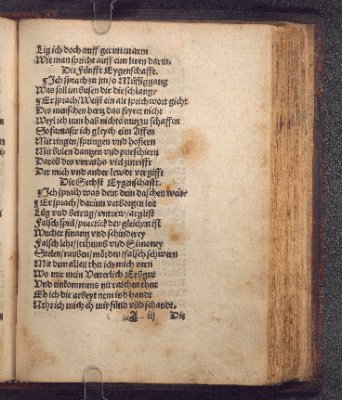 Lig ich doch auff gerottenarm
Wie man spricht auff eim leren darm.
Die Fünfft Eygenschafft.
Ich sprach zu jm / o Müssiggang
Was soll im busen dir die schlange
Er sprach / Weist ein alt sprichwort nicht
Des menschen hertz das feyret nicht
Weyl ich nun hab nichts nutz zu schaffen
So fantasir ich gleych ein Affen
Mit ringen / springen vnd hofiern
Mit bulen dantzen vnd purschiern
Darob des vnraths viel zutrifft
Der mich vnd ander lewdt vergifft
Die Sechst Eygenschafft.
Ich sprach was deut denn das ein weib
Er sprach / darinn verborgen leit
Lüg vnd betrug / vntrew / arglist
Falsch spil / practick der gleichen ist
Wucher finantz vnd schinderey
Falsch lehr / jrthumb vnd Simoney
Stelen / rauben / mörden / falsch schwern
Mit dem allen thu ich mich nern
Wo mir mein Vetterlich Erbgut
Vnd einkommens nit raichen thut
Eh ich die arbeyt nem ind handt
Nehr ich mich eh mit sünd vnd schandt.
A iij Die